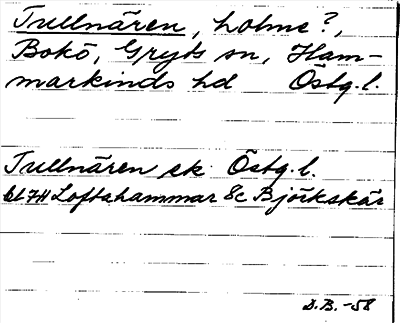 Tullnären, holme?,
Bokö, Gryts sn, Ham-
markinds hd Östg.l.
Tullnären ek Östg.l.
bl 74 Loftahammar 8c Björkskär
D.B. -58